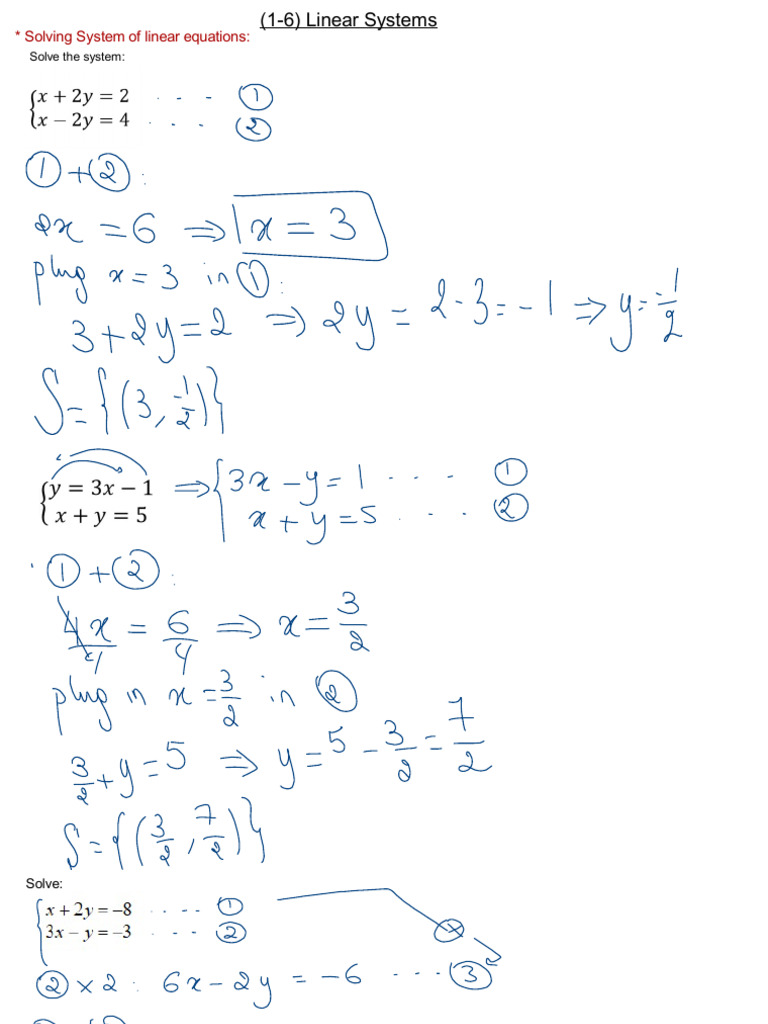 (1-6) Linear Systems
* Solving System of linear equations:
Solve the system:
{x + 2y = 2 . . . ①
{x − 2y = 4 . . . ②
① + ② :
2x = 6 ⇒ x = 3
plug x = 3 in ① :
3 + 2y = 2 ⇒ 2y = 2 - 3 = -1 ⇒ y = -1/2
S = {(3, -1/2)}
{y = 3x − 1 ⇒ {3x − y = 1 . . . . ①
{x + y = 5 x + y = 5 . . . ②
① + ② :
4x/4 = 6/4 ⇒ x = 3/2
plug in x = 3/2 in ②
3/2 + y = 5 ⇒ y = 5 − 3/2 = 7/2
S = {(3/2, 7/2)}
Solve:
{x + 2y = −8 . . . . ①
{3x − y = −3 . . . ②
② × 2 : 6x − 2y = −6 . . . ③